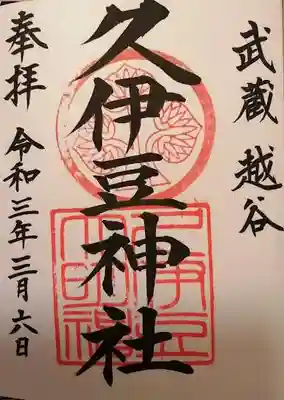 武蔵 越谷
久伊豆神社
奉拝 令和三年三月六日